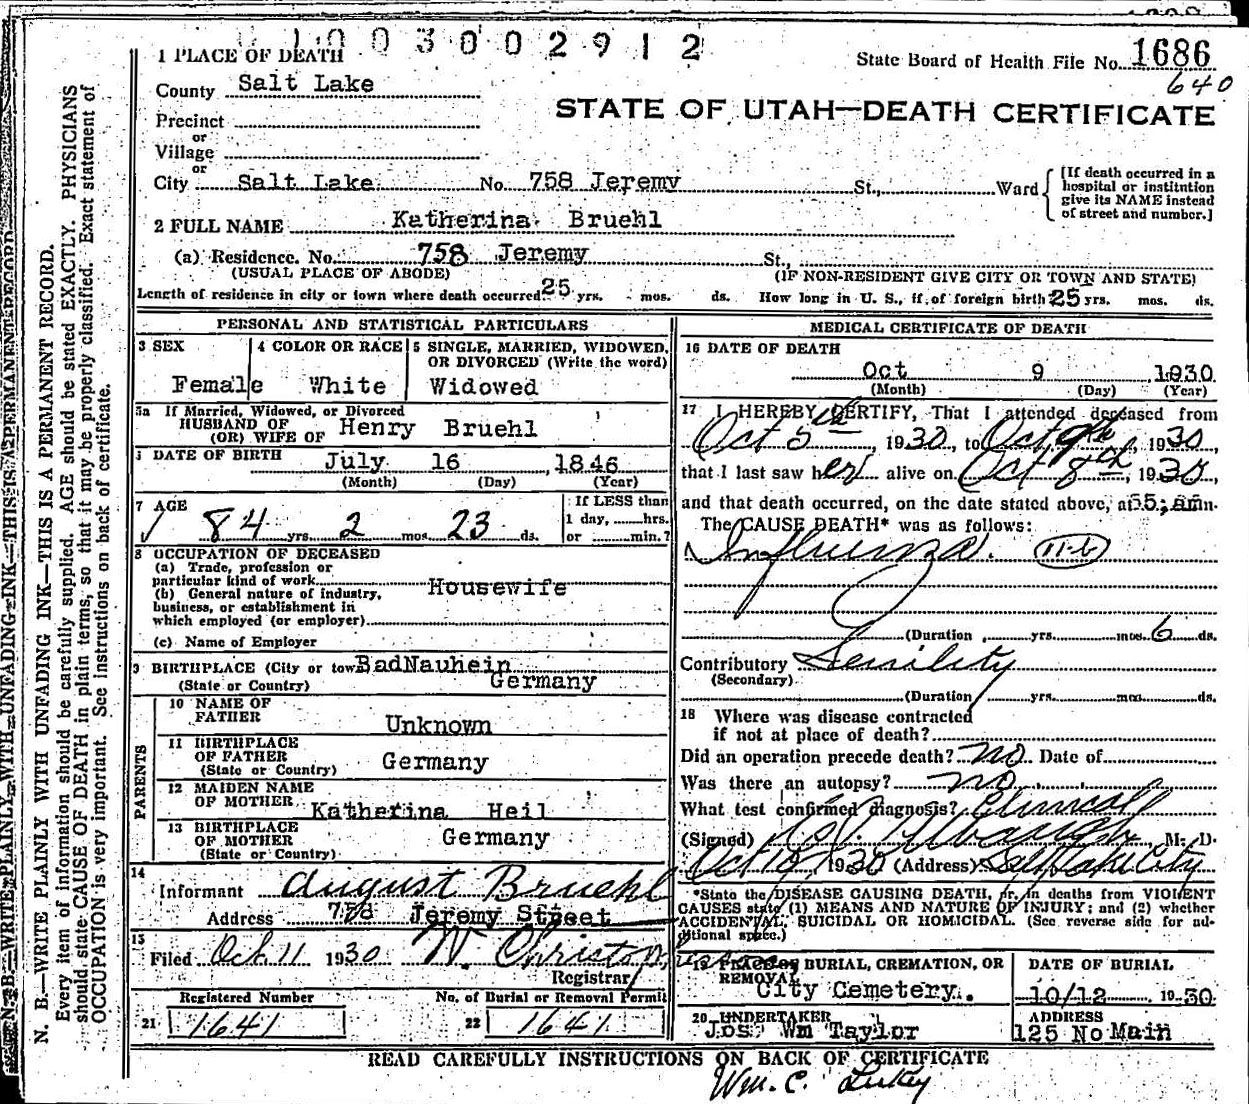 1003002912
1 PLACE OF DEATH
State Board of Health File No. 1686
640
County Salt Lake
STATE OF UTAH—DEATH CERTIFICATE
Precinct
or
Village
or
City Salt Lake No. 758 Jeremy St., Ward
[If death occurred in a hospital or institution give its NAME instead of street and number.]
2 FULL NAME Katherina Bruehl
(a) Residence. No. 758 Jeremy St.,
(USUAL PLACE OF ABODE) (IF NON-RESIDENT GIVE CITY OR TOWN AND STATE)
Length of residence in city or town where death occurred 25 yrs. - mos. ds. How long in U. S., if of foreign birth 25 yrs. mos. ds.
PERSONAL AND STATISTICAL PARTICULARS
3 SEX
Female
4 COLOR OR RACE
White
5 SINGLE, MARRIED, WIDOWED,
OR DIVORCED (Write the word)
Widowed
5a If Married, Widowed, or Divorced
HUSBAND OF
(OR) WIFE OF Henry Bruehl
DATE OF BIRTH July 16 1846
(Month) (Day) (Year)
7 AGE
84 yrs. 2 mos. 23 ds.
If LESS than
1 day, hrs.
or min.?
8 OCCUPATION OF DECEASED
(a) Trade, profession or
particular kind of work
Housewife
(b) General nature of industry,
business, or establishment in
which employed (or employer)
(c) Name of Employer
9 BIRTHPLACE (City or town) BadNauhein
(State or Country) Germany
PARENTS
10 NAME OF
FATHER Unknown
11 BIRTHPLACE
OF FATHER Germany
(State or Country)
12 MAIDEN NAME
OF MOTHER Katherina Heil
13 BIRTHPLACE
OF MOTHER Germany
(State or Country)
14
Informant August Bruehl
Address 758 Jeremy Street
15
Filed Oct. 11 1930 W. Christo
Registrar
Registered Number
21 1641
No. of Burial or Removal Permit
22 1641
MEDICAL CERTIFICATE OF DEATH
16 DATE OF DEATH
Oct 9 1930
(Month) (Day) (Year)
17 I HEREBY CERTIFY, That I attended deceased from
Oct 5th, 1930, to Oct 9th, 1930,
that I last saw her alive on Oct 8th, 1930,
and that death occurred, on the date stated above, at
The CAUSE DEATH* was as follows:
Influenza. 11-b
(Duration yrs. mos. 6 ds.
Contributory Senility
(Secondary)
(Duration yrs. mos. ds.
18 Where was disease contracted
if not at place of death?
Did an operation precede death? no Date of
Was there an autopsy? no
What test confirmed diagnosis? Clinical
(Signed) M. D.
Oct 10 1930 (Address) Salt Lake City
*State the DISEASE CAUSING DEATH, or, in deaths from VIOLENT
CAUSES state (1) MEANS AND NATURE OF INJURY; and (2) whether
ACCIDENTAL, SUICIDAL OR HOMICIDAL. (See reverse side for ad-
ditional space.)
19 PLACE OF BURIAL, CREMATION, OR
REMOVAL
City Cemetery.
DATE OF BURIAL
10/12 1930
20 UNDERTAKER
Jos. Wm Taylor
ADDRESS
125 No Main
READ CAREFULLY INSTRUCTIONS ON BACK OF CERTIFICATE
Wm. C.
N. B.—WRITE PLAINLY WITH UNFADING INK—THIS IS A PERMANENT RECORD
N. B.—WRITE PLAINLY WITH UNFADING INK—THIS IS A PERMANENT RECORD.
Every item of information should be carefully supplied. AGE should be stated EXACTLY. PHYSICIANS
should state CAUSE OF DEATH in plain terms, so that it may be properly classified. Exact statement of
OCCUPATION is very important. See instructions on back of certificate.